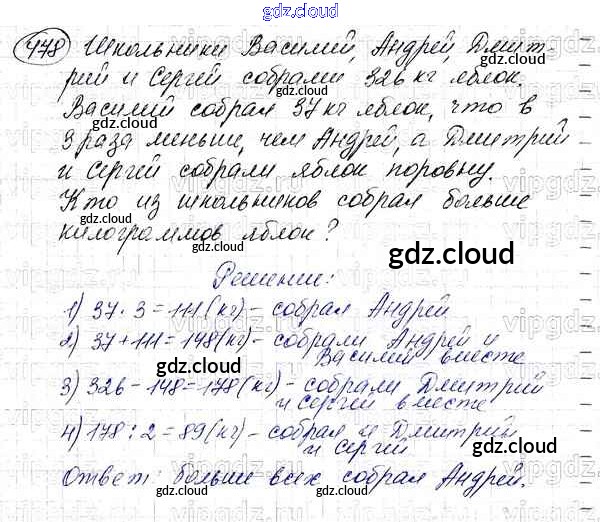 gdz.cloud
478 Школьники Василий, Андрей, Дмит-
рий и Сергей собрали 326 кг яблок.
Василий собрал 37 кг яблок, что в
3 раза меньше, чем Андрей, а Дмитрий
и Сергей собрали яблок поровну.
Кто из школьников собрал больше
килограммов яблок?
Решение:
1) 37 · 3 = 111 (кг) – собрал Андрей
2) 37 + 111 = 148 (кг) – собрали Андрей и
Василий вместе
3) 326 – 148 = 178 (кг) – собрали Дмитрий
и Сергей вместе
4) 178 : 2 = 89 (кг) – собрал и Дмитрий
и Сергей
Ответ: больше всех собрал Андрей.